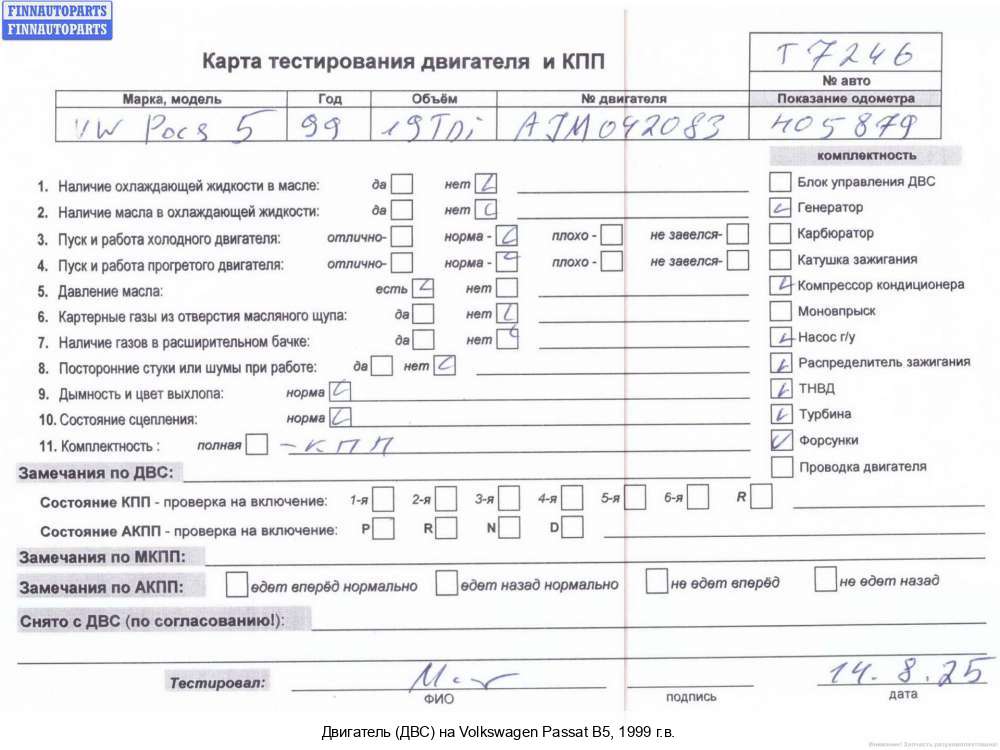 FINNAUTOPARTS
FINNAUTOPARTS
Карта тестирования двигателя и КПП
T 7246
№ авто
Марка, модель Год Объём № двигателя Показание одометра
VW Pocя 5 99 19TDi AJM042083 405879
комплектность
1. Наличие охлаждающей жидкости в масле: да нет
Блок управления ДВС
2. Наличие масла в охлаждающей жидкости: да нет
Генератор
3. Пуск и работа холодного двигателя: отлично- норма - плохо - не завелся-
Карбюратор
4. Пуск и работа прогретого двигателя: отлично- норма - плохо - не завелся-
Катушка зажигания
5. Давление масла: есть нет
Компрессор кондиционера
6. Картерные газы из отверстия масляного щупа: да нет
Моновпрыск
7. Наличие газов в расширительном бачке: да нет
Насос г/у
8. Посторонние стуки или шумы при работе: да нет
Распределитель зажигания
9. Дымность и цвет выхлопа: норма
ТНВД
10. Состояние сцепления: норма
Турбина
11. Комплектность : полная - КПП
Форсунки
Замечания по ДВС:
Проводка двигателя
Состояние КПП - проверка на включение: 1-я 2-я 3-я 4-я 5-я 6-я R
Состояние АКПП - проверка на включение: P R N D
Замечания по МКПП:
Замечания по АКПП: едет вперёд нормально едет назад нормально не едет вперёд не едет назад
Снято с ДВС (по согласованию!):
Тестировал: 14.8.25
ФИО подпись дата
Двигатель (ДВС) на Volkswagen Passat B5, 1999 г.в.
Внимание! Запчасть разукомплектована!